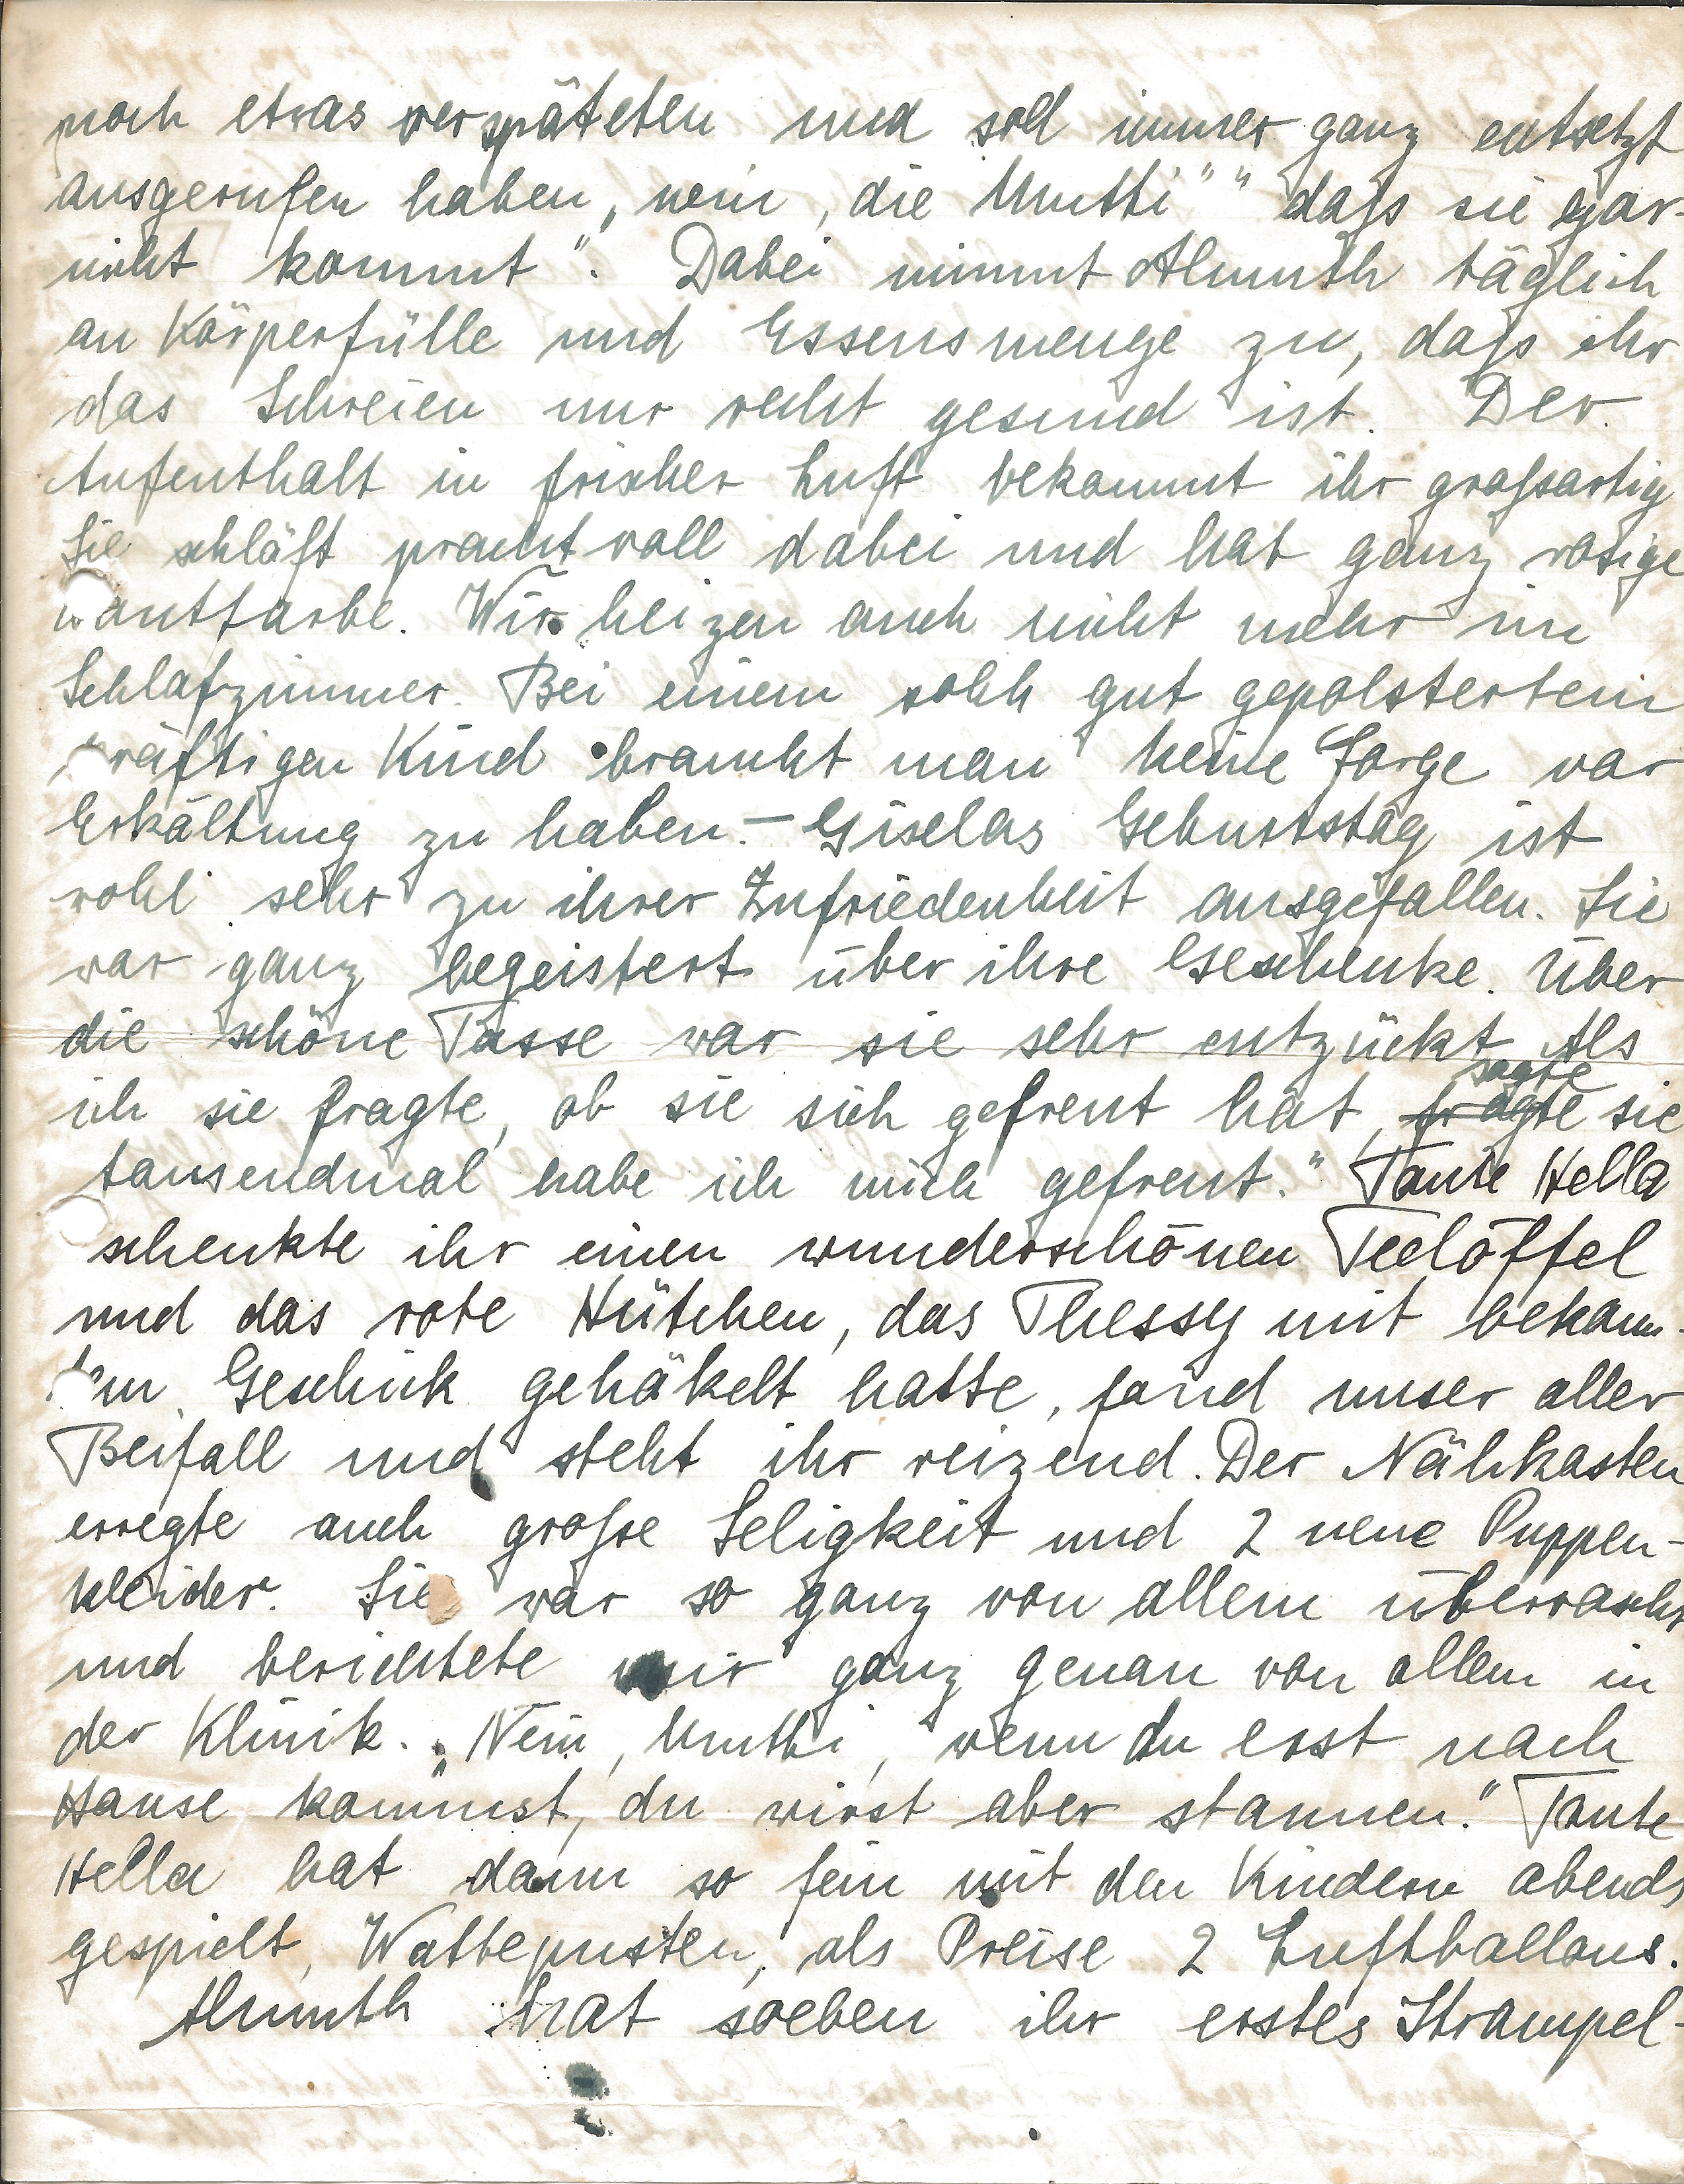 noch etwas verspäteten und soll immer ganz entsetzt
ausgerufen haben „nein, die Mutti" " daſs sie gar-
nicht kommt". Dabei nimmt Almuth täglich
an Körperfülle und Essensmenge zu, daſs ihr
das Schreien nur recht gesund ist. Der
Aufenthalt in frischer Luft bekommt ihr groſsartig
Sie schläft prachtvoll dabei und hat ganz rosige
Hautfarbe. Wir heizen auch nicht mehr im
Schlafzimmer. Bei einem solch gut gepolstertem
kräftigen Kind braucht man keine Sorge vor
Erkältung zu haben. – Giselas Geburtstag ist
wohl sehr zu ihrer Zufriedenheit ausgefallen. Sie
war ganz begeistert über ihre Geschenke. Über
die schöne Tasse war sie sehr entzückt. Als
ich sie fragte, ob sie sich gefreut hat, fragte sagte sie
tausendmal habe ich mich gefreut." Tante Hella
schenkte ihr einen wunderschönen Teelöffel
und das rote Hütchen, das Thessy mit bekann-
tem Geschick gehäkelt hatte, fand unser aller
Beifall und steht ihr reizend. Der Nähkasten
erregte auch groſse Seligkeit und 2 neue Puppen-
kleider. Sie war so ganz von allem überrascht
und berichtete mir ganz genau von allem in
der Klinik. „Nein, Mutti, wenn du erst nach
Hause kommst, du wirst aber staunen." Tante
Hella hat dann so fein mit den Kindern abends
gespielt, Wattepusten, als Preise 2 Luftballons.
Almuth hat soeben ihr erstes Strampel-